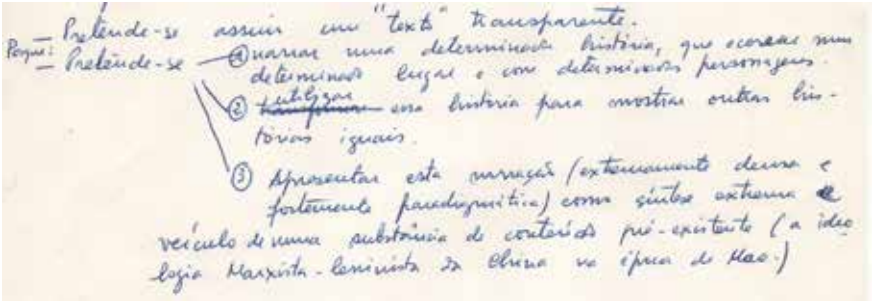 — Pretende-se assim um "texto" transparente.
Porque:
— Pretende-se — ① narrar uma determinada história, que ocorreu num
determinado lugar e com determinados personagens.
② utilizar
~~transformar~~ essa história para mostrar outras his-
tórias iguais.
③ Apresentar esta narração (extremamente densa e
fortemente paradigmática) como síntese extrema e
veículo de uma substância de conteúdo pré-existente (a ideo
logia Marxista-leninista da China na época de Mao.)